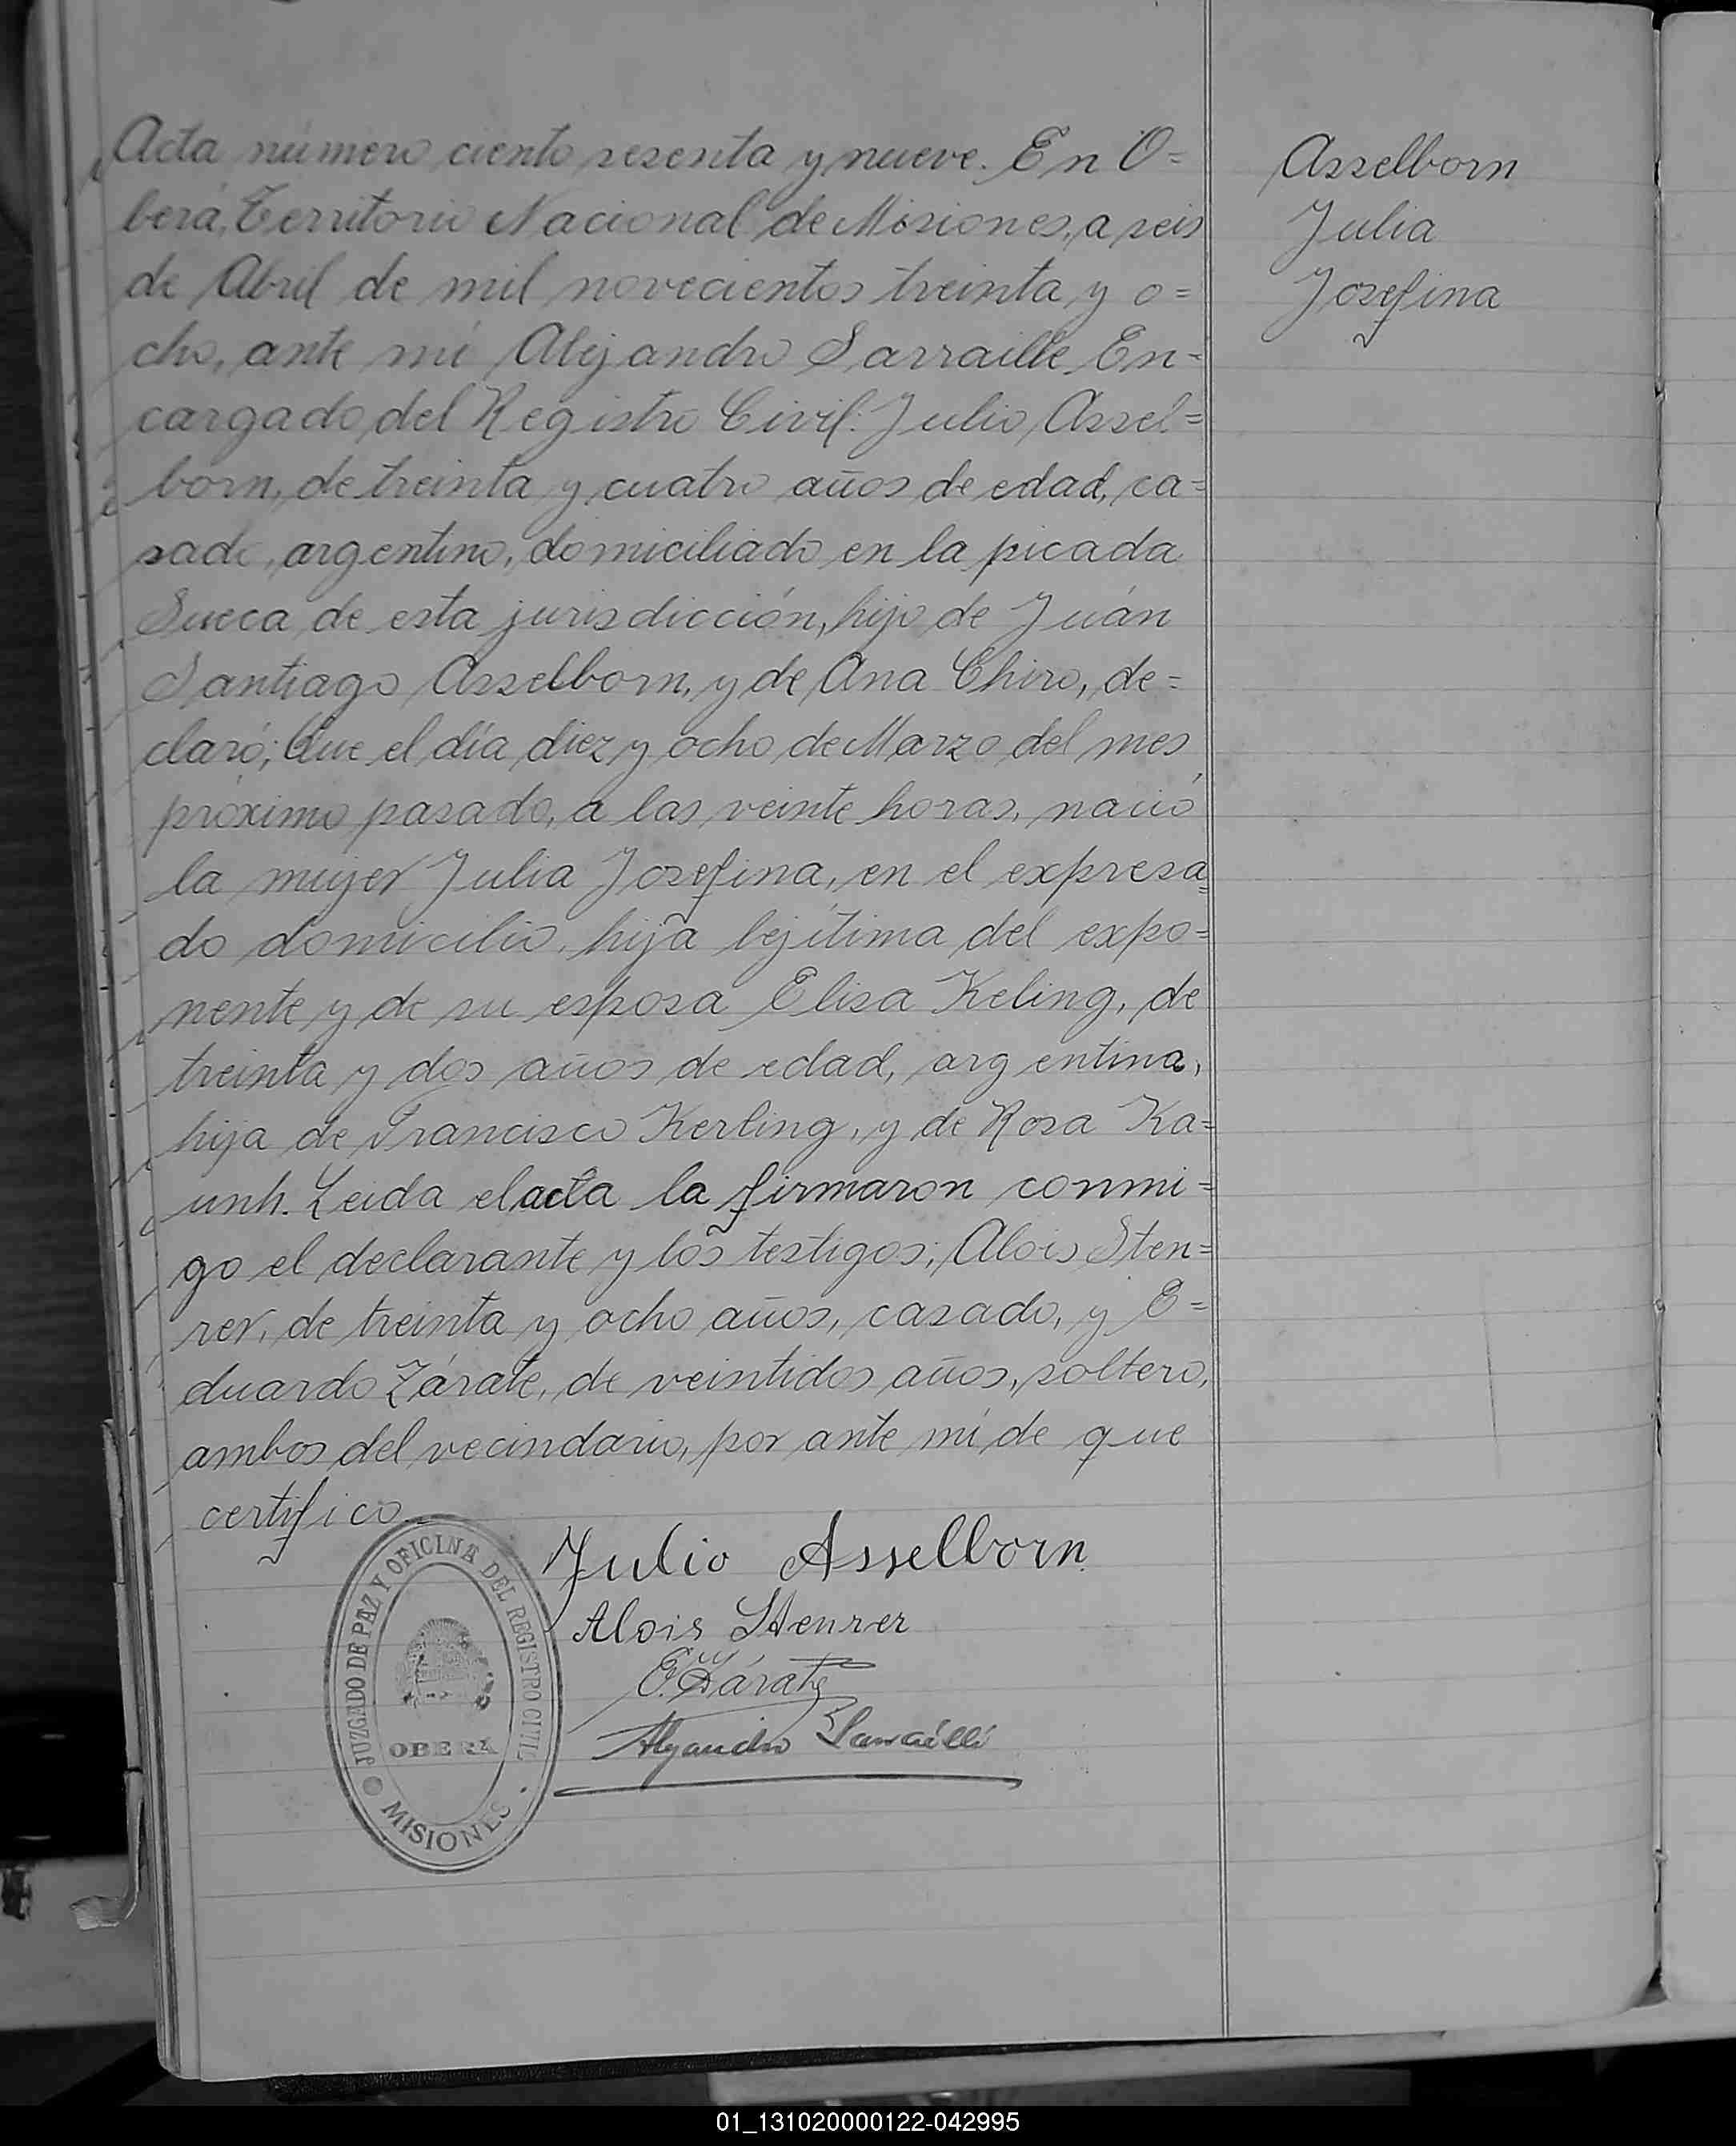 Acta número ciento sesenta y nueve. En O=
berá, Territorio Nacional de Misiones, a seis
de Abril de mil novecientos treinta y o=
cho, ante mí Alejandro Sarraille En=
cargado del Registro Civil: Julio Assel=
born, de treinta y cuatro años de edad, ca=
sado, argentino, domiciliado en la picada
Sueca de esta jurisdicción, hijo de Juán
Santiago Asselborn, y de Ana Chiro, de=
claró; Que el día diez y ocho de Marzo del mes
próximo pasado, a las veinte horas, nació
la mujer Julia Josefina, en el expresa=
do domicilio, hija lejítima del expo=
nente y de su esposa Elisa Keling, de
treinta y dos años de edad, argentina,
hija de Francisco Kerling, y de Rosa Ka=
unh. Leida el acta la firmaron conmi=
go el declarante y los testigos; Alois Sten=
rer, de treinta y ocho años, casado, y E=
duardo Zárate, de veintidos años, soltero,
ambos del vecindario, por ante mí de que
certifico
Asselborn
Julia
Josefina
Julio Asselborn
Alois Stenrer
E. Zárate
Alejandro Sarraille
JUZGADO DE PAZ Y OFICINA DEL REGISTRO CIVIL
OBERA
MISIONES
01_131020000122-042995